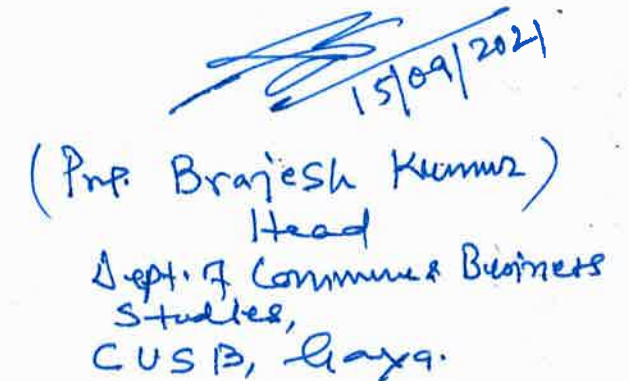 15/09/2021
(Prof. Brajesh Kumar)
Head
Dept. of Commerce & Business
Studies,
CUSB, Gaya.